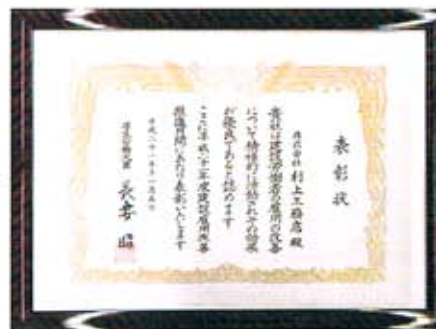 表彰状
株式会社 村上工務店 殿
貴社は建設労働者の雇用の改善
について積極的に活動されその効果
が優良であると認めます
ここに平成二十一年度建設雇用改善
推進月間にあたり表彰いたします
平成二十一年十一月五日
厚生労働大臣 長妻 昭